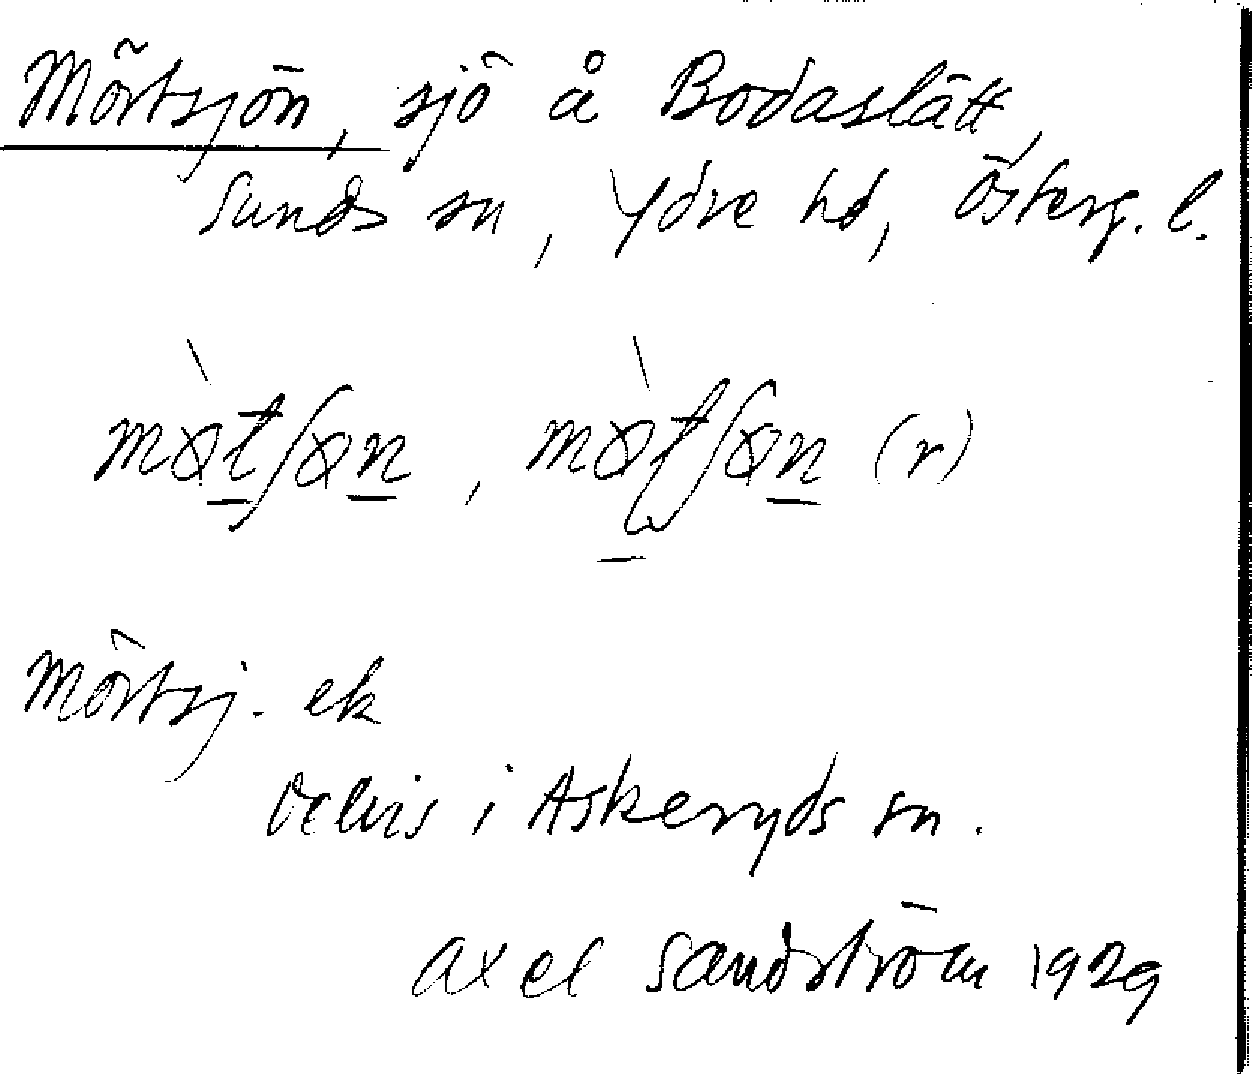 Mörtsjön, sjö å Bodaslätt,
Sunds sn, Ydre hd, Österg. l.
mø̀tʃøn, mø̀tʃøn (r)
Mörtsj. ek
delvis i Askeryds sn.
Axel Sandström 1929